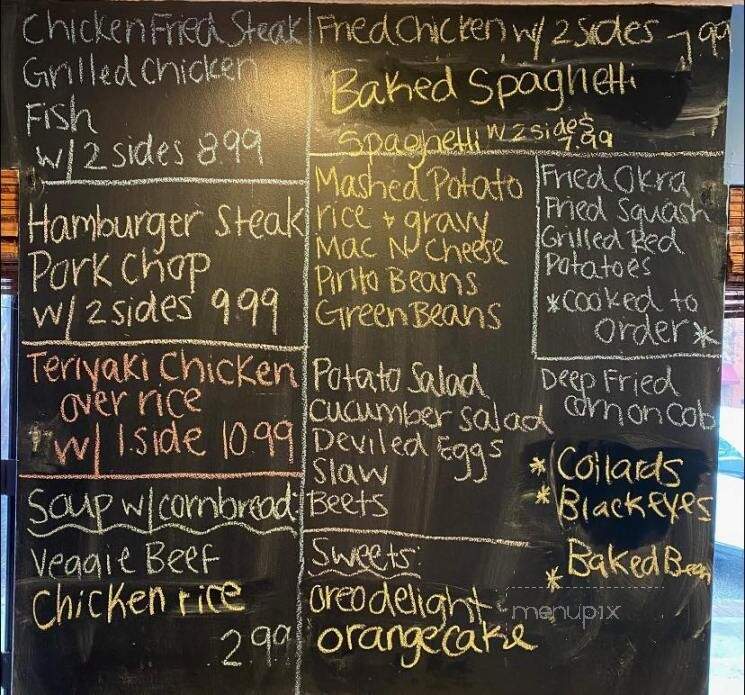 Chicken Fried Steak
Grilled Chicken
Fish
w/ 2 sides 8.99
Hamburger Steak
Pork Chop
w/ 2 sides 9.99
Teriyaki Chicken
over rice
w/ 1 side 10.99
Soup w/ cornbread:
Veggie Beef
Chicken rice
2.99
Fried Chicken w/ 2 sides 7.99
Baked Spaghetti
Spaghetti w 2 sides
7.99
Mashed Potato
rice + gravy
Mac N Cheese
Pinto Beans
Green Beans
Fried Okra
Fried Squash
Grilled Red
Potatoes
*cooked to
order*
Potato Salad
cucumber salad
Deviled Eggs
Slaw
Beets
Deep Fried
corn on cob
* Collards
* Blackeyes
* Baked Bean
Sweets:
oreo delight
orange cake
menupix